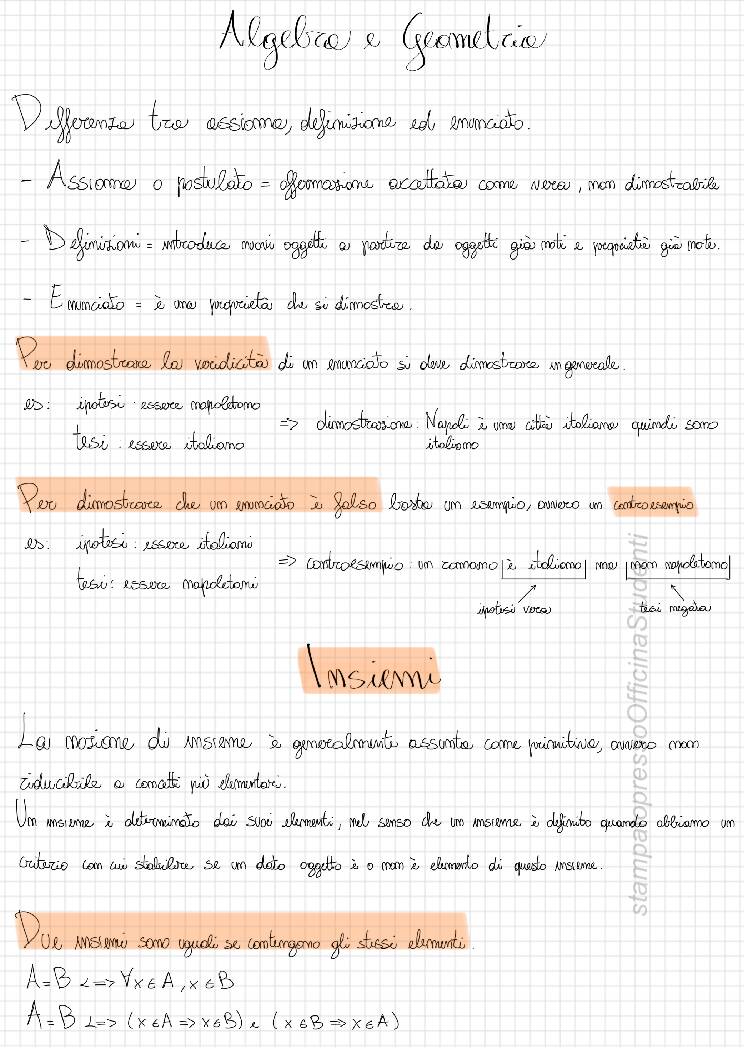 Algebra e Geometria
Differenza tra assioma, definizione ed enunciato.
- Assioma o postulato = affermazione accettata come vera, non dimostrabile
- Definizioni = introduce nuovi oggetti a partire da oggetti già noti e proprietà già note.
- Enunciato = è una proprietà che si dimostra.
Per dimostrare la veridicità di un enunciato si deve dimostrare in generale.
es: ipotesi : essere napoletano
tesi : essere italiano
=> dimostrazione: Napoli è una città italiana quindi sono
italiano
Per dimostrare che un enunciato è falso basta un esempio, ovvero un controesempio
es: ipotesi : essere italiani
tesi: essere napoletani
=> controesempio : un romano è italiano ma non napoletano
ipotesi vera
tesi negata
Insiemi
La nozione di insieme è generalmente assunta come primitiva, ovvero non
riducibile a concetti più elementari.
Un insieme è determinato dai suoi elementi, nel senso che un insieme è definito quando abbiamo un
criterio con cui stabilire se un dato oggetto è o non è elemento di questo insieme.
Due insiemi sono uguali se contengono gli stessi elementi.
A = B <=> ∀x ∈ A , x ∈ B
A = B <=> (x ∈ A => x ∈ B) e (x ∈ B => x ∈ A)
stampatopressoOfficinaStudenti